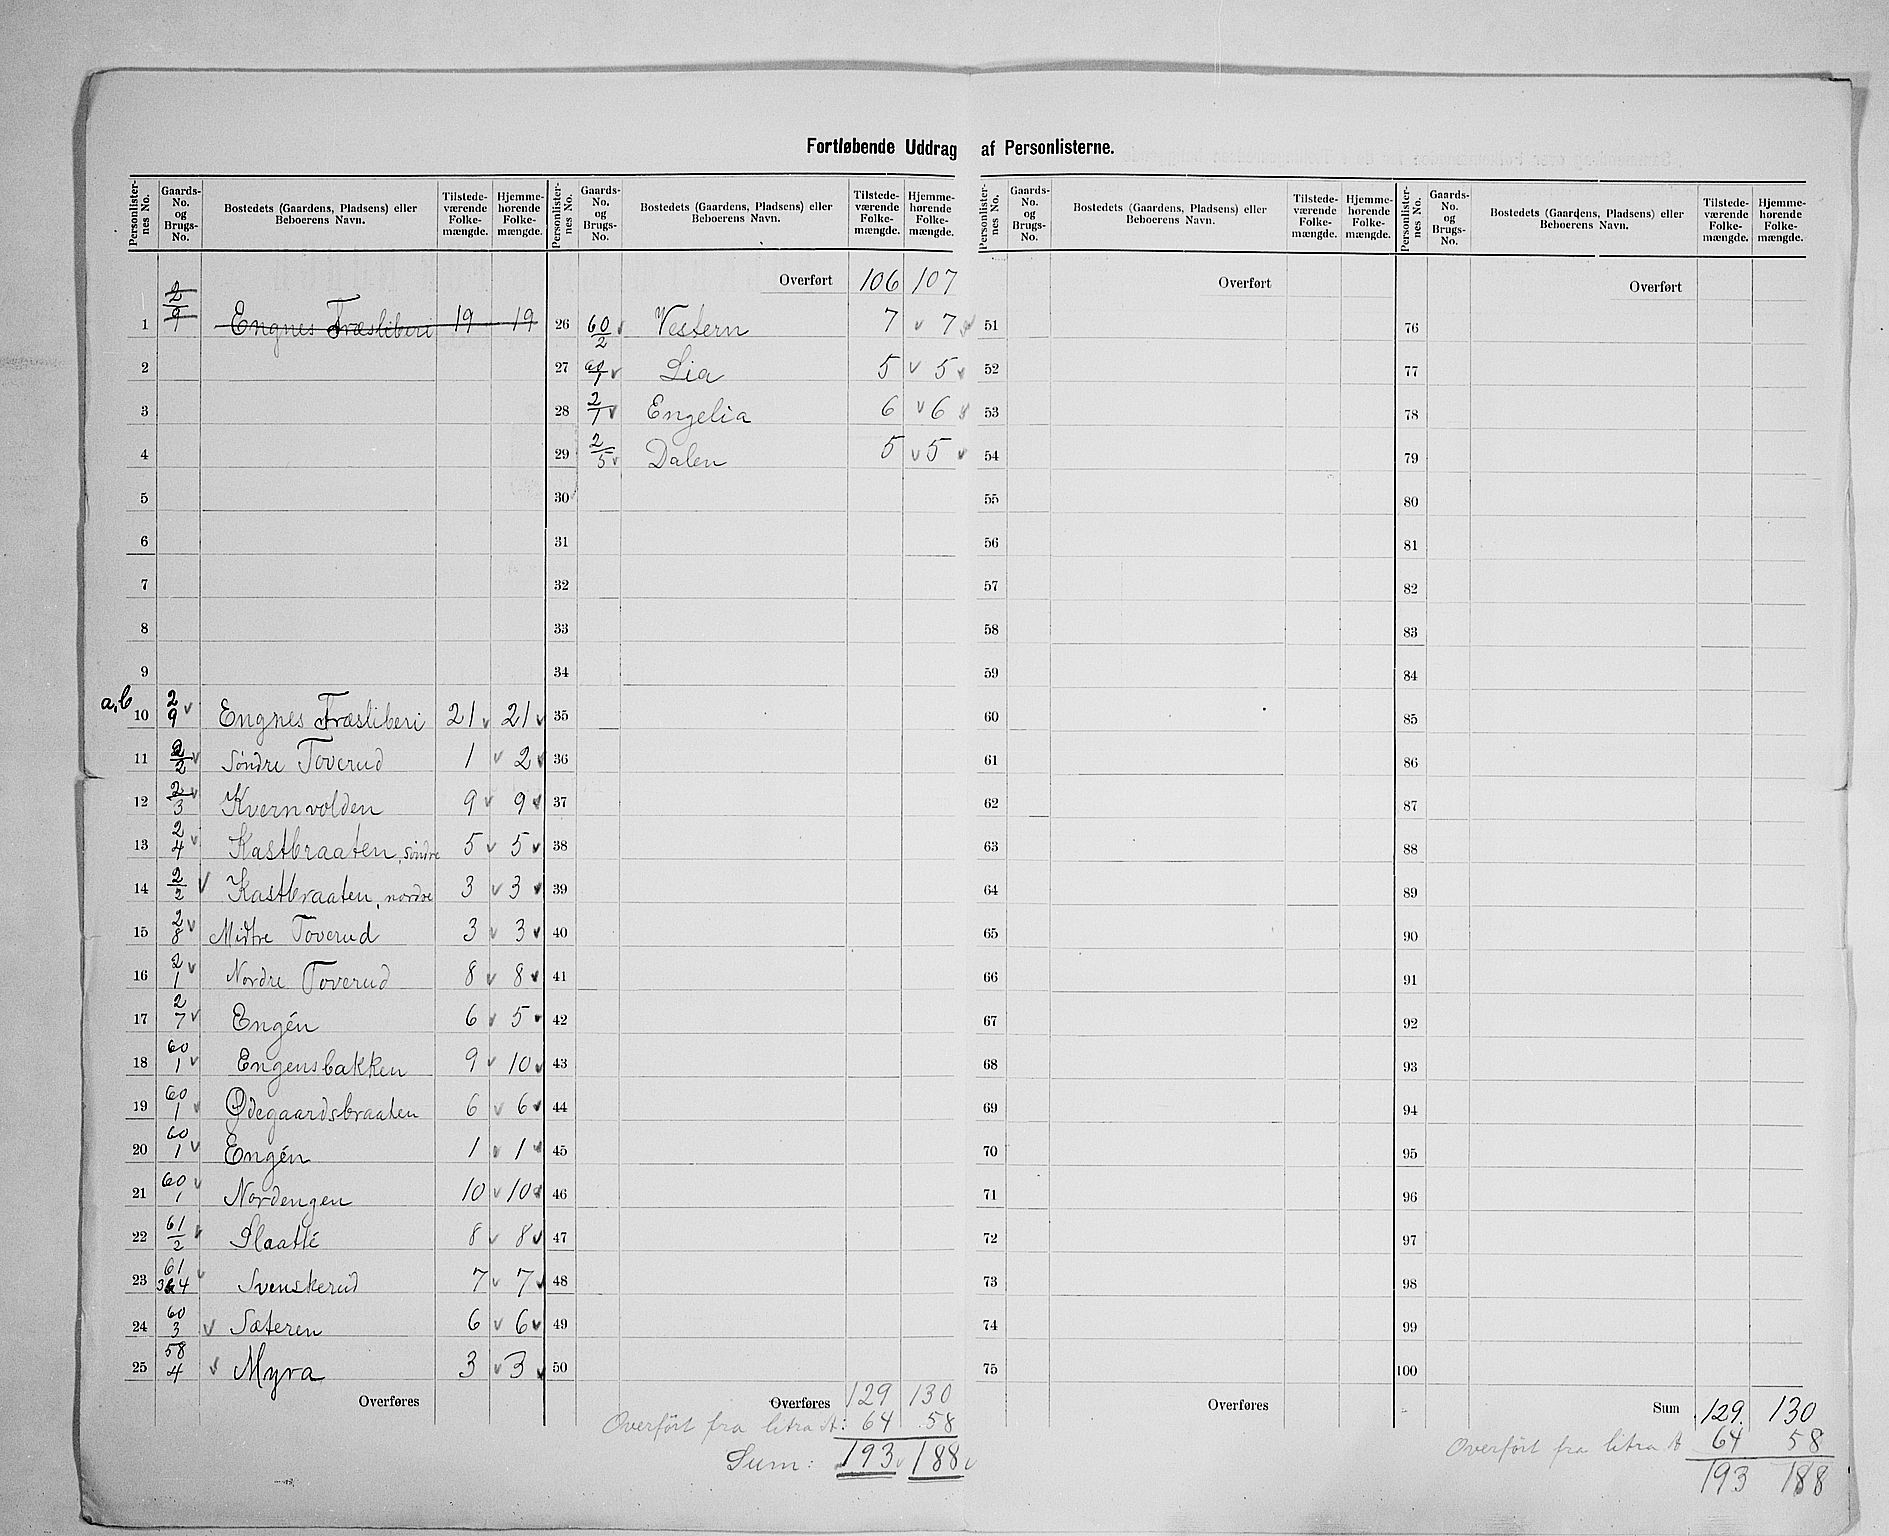 Fortløbende Uddrag af Personlisterne.
Personlister-nes No. | Gaards-No. og Brugs-No. | Bostedets (Gaardens, Pladsens) eller Beboerens Navn. | Tilstede-værende Folke-mængde. | Hjemme-hørende Folke-mængde.
Personlister-nes No. | Gaards-No. og Brugs-No. | Bostedets (Gaardens, Pladsens) eller Beboerens Navn. | Tilstede-værende Folke-mængde. | Hjemme-hørende Folke-mængde.
Personlister-nes No. | Gaards-No. og Brugs-No. | Bostedets (Gaardens, Pladsens) eller Beboerens Navn. | Tilstede-værende Folke-mængde. | Hjemme-hørende Folke-mængde.
Personlister-nes No. | Gaards-No. og Brugs-No. | Bostedets (Gaardens, Pladsens) eller Beboerens Navn. | Tilstede-værende Folke-mængde. | Hjemme-hørende Folke-mængde.
1 2/9 Engnes Træsliberi 19 19
2
3
4
5
6
7
8
9
a,b 10 2/9 Engnes Træsliberi 21 21
11 2/2 Söndre Toverud 1 2
12 2/3 Kvernvolden 9 9
13 2/4 Kastbraaten, söndre 5 5
14 2/2 Kastbraaten, nordre 3 3
15 2/8 Midtre Toverud 3 3
16 2/1 Nordre Toverud 8 8
17 2/7 Engén 6 5
18 60/1 Engensbakken 9 10
19 60/1 Ødegaardsbraaten 6 6
20 60/1 Engén 1 1
21 60/1 Nordengen 10 10
22 61/2 Slaatté 8 8
23 61/3&4 Svenskerud 7 7
24 60/3 Sæteren 6 6
25 58/4 Myra 3 3
Overføres
Overført 106 107
26 60/2 Vestern 7 7
27 60/1 Lia 5 5
28 2/1 Engelia 6 6
29 2/5 Dalen 5 5
30
31
32
33
34
35
36
37
38
39
40
41
42
43
44
45
46
47
48
49
50
Overføres 129 130
Overfört fra litra A: 64 58
Sum: 193 188
Overført
51
52
53
54
55
56
57
58
59
60
61
62
63
64
65
66
67
68
69
70
71
72
73
74
75
Overføres
Overført
76
77
78
79
80
81
82
83
84
85
86
87
88
89
90
91
92
93
94
95
96
97
98
99
100
Sum 129 130
Overfört fra litra A 64 58
193 188